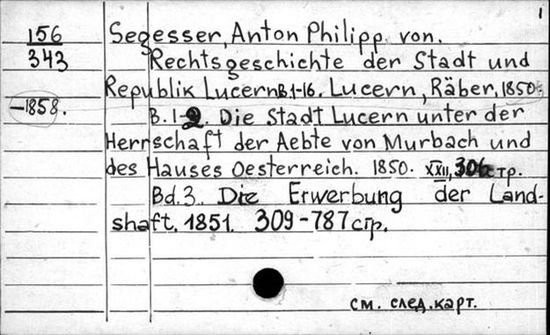 1
156
343
Segesser, Anton Philipp von.
Rechtsgeschichte der Stadt und
Republik Lucern B.1-16. Lucern, Räber, 1850-
-1858.
B.1-2. Die Stadt Lucern unter der
Herrschaft der Aebte von Murbach und
des Hauses Oesterreich. 1850. XXII, 306 стр.
Bd.3. Die Erwerbung der Land-
shaft. 1851. 309-787 стр.
см. след. карт.